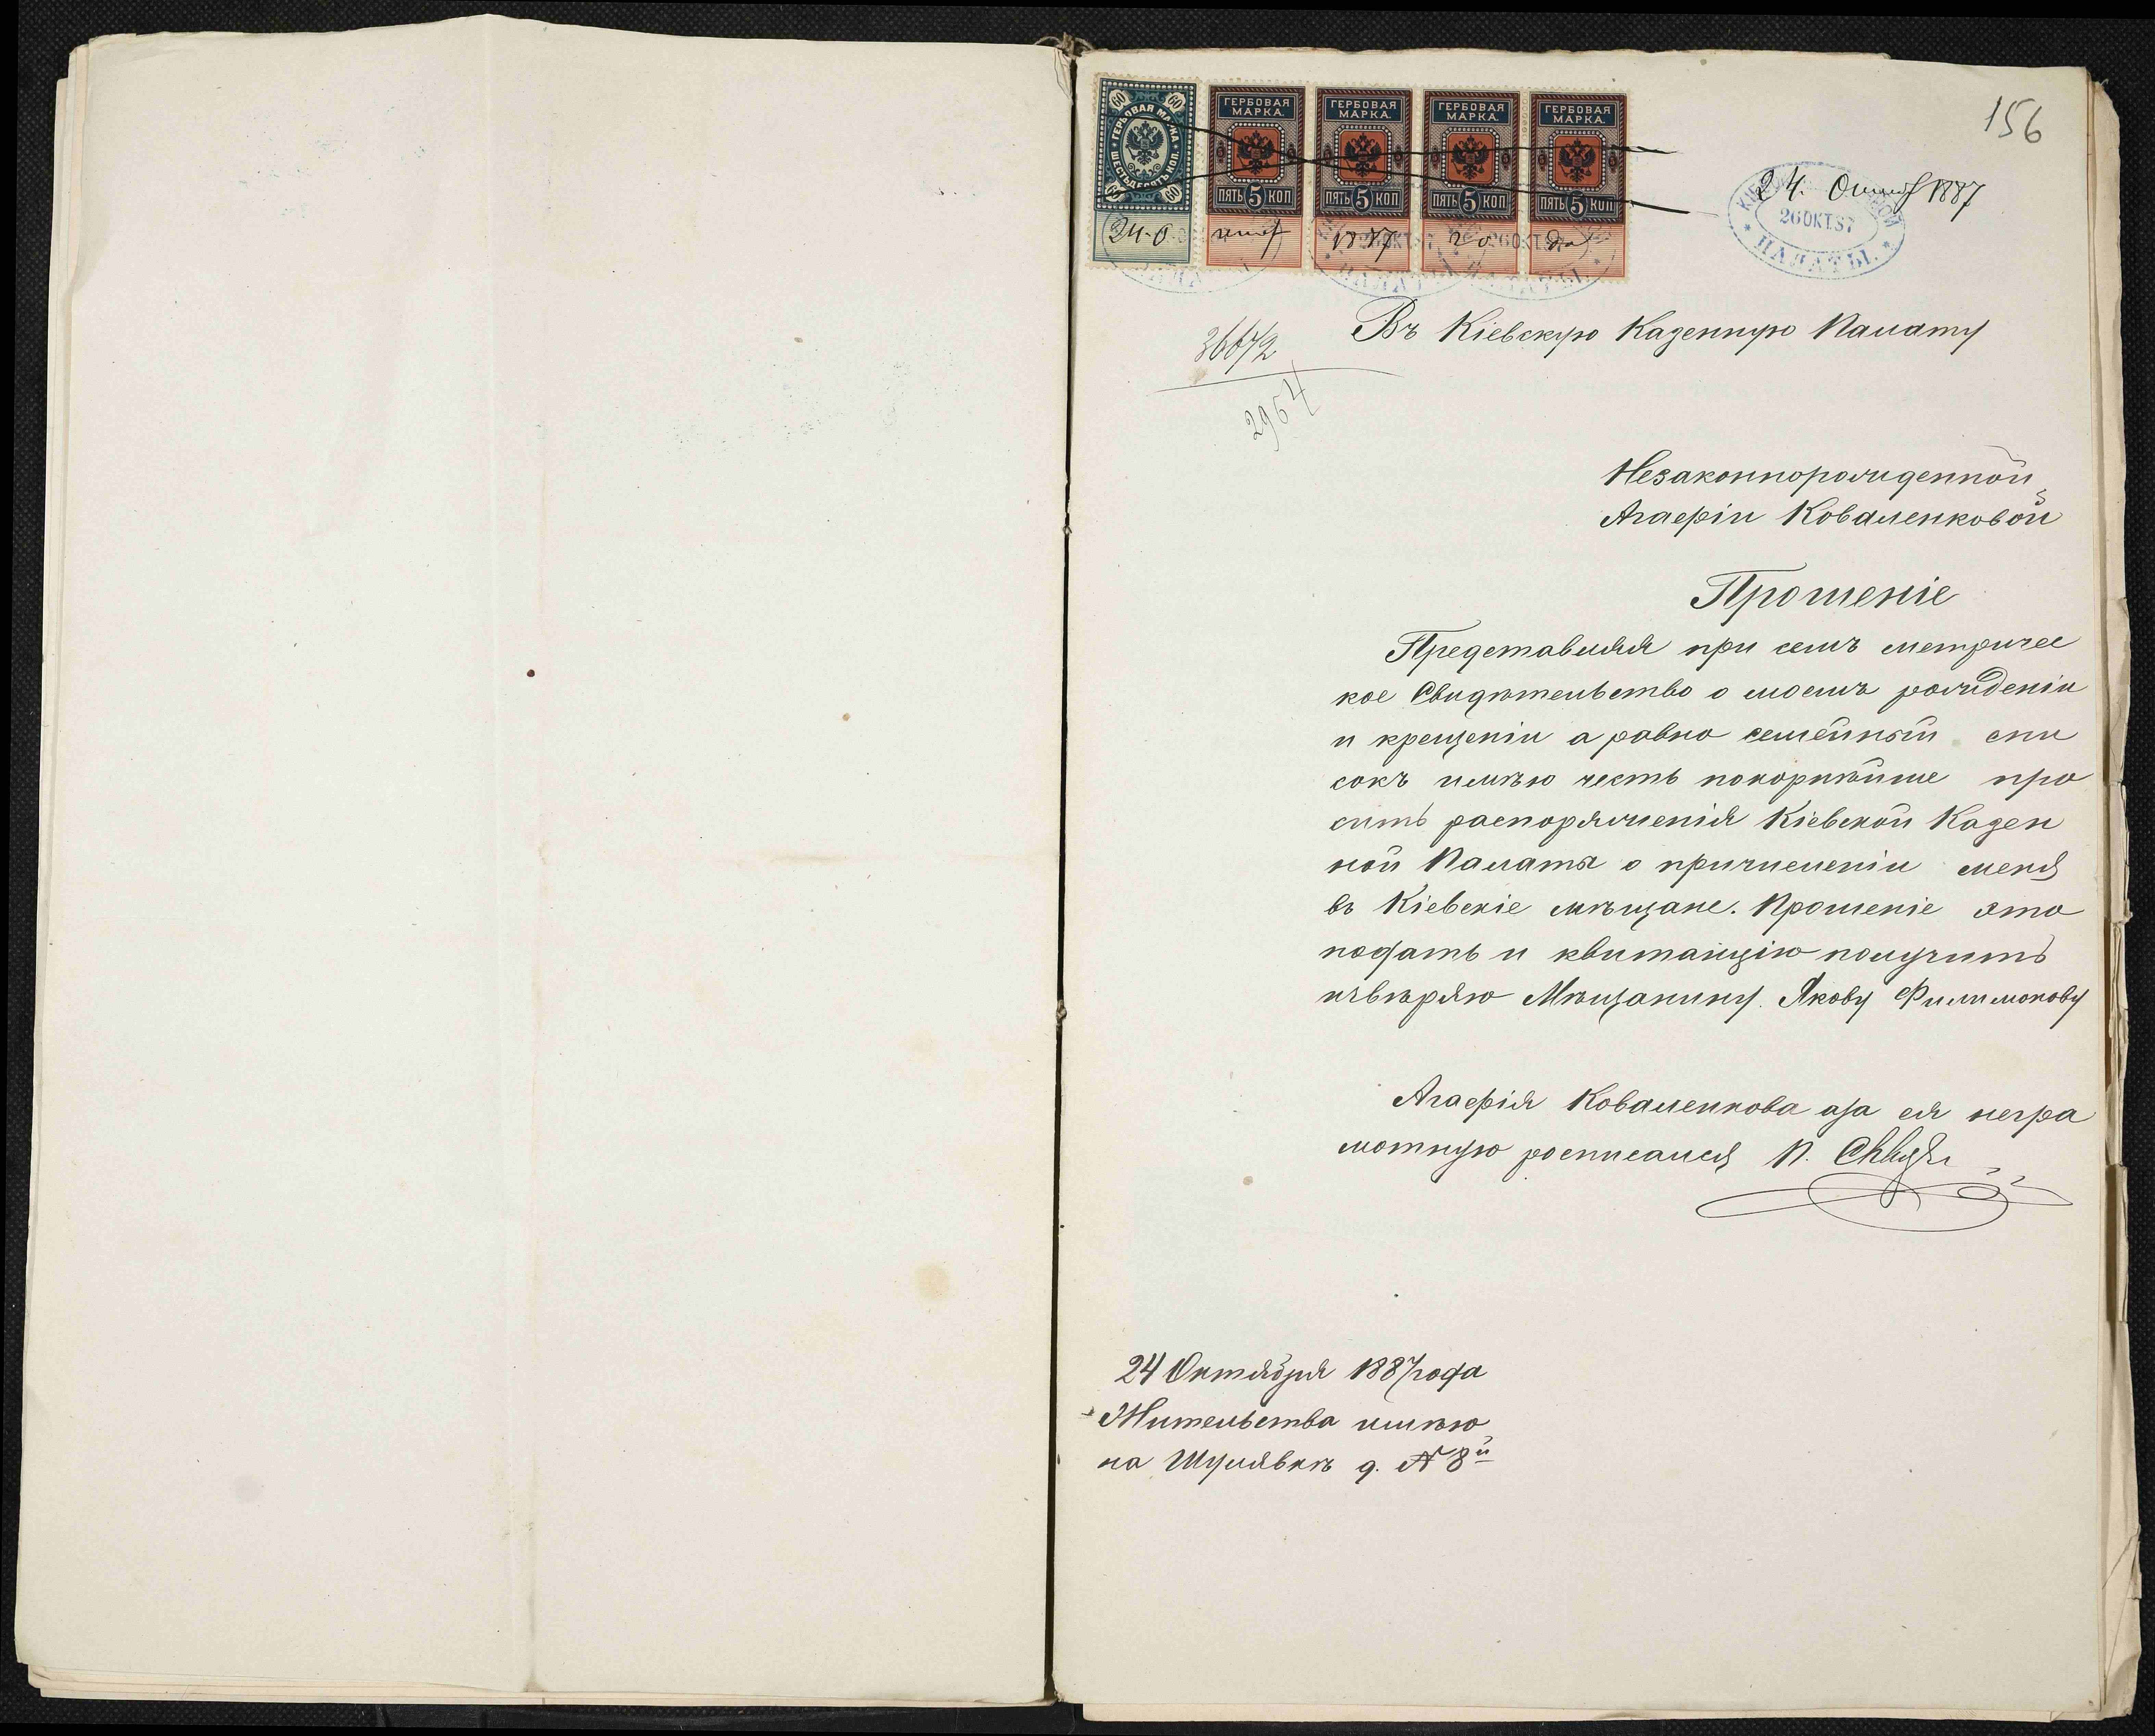 156
60 60
ГЕРБОВАЯ МАРКА
ШЕСТЬДЕСЯТЪ КОП.
60 60
ГЕРБОВАЯ МАРКА.
ПЯТЬ 5 КОП
ГЕРБОВАЯ МАРКА.
ПЯТЬ 5 КОП
ГЕРБОВАЯ МАРКА.
ПЯТЬ 5 КОП
ГЕРБОВАЯ МАРКА.
ПЯТЬ 5 КОП
24. Октяб 1887
26 ОКТ. 87
ПАЛАТЫ.
24-О ктяб 1887 го да
Въ Кіевскую Казенную Палату
36672
2954
Незаконнорожденной
Агафіи Коваленковой
Прошеніе
Представляя при семъ метричес
кое Свидѣтельство о моемъ рожденіи
и крещеніи а равно семейный спи
сокъ имѣю честь покорнѣйше про
сить распоряженія Кіевской Казен
ной Палаты о причисленіи меня
въ Кіевскіе мѣщане. Прошеніе это
подать и квитанцію получить
ввѣряю Мѣщанину Якову Филимонову
Агафія Коваленкова а за ея негра
мотную росписался П.
24 Октября 1887 года
Жительства имѣю
на Шулявкѣ д. № 8й